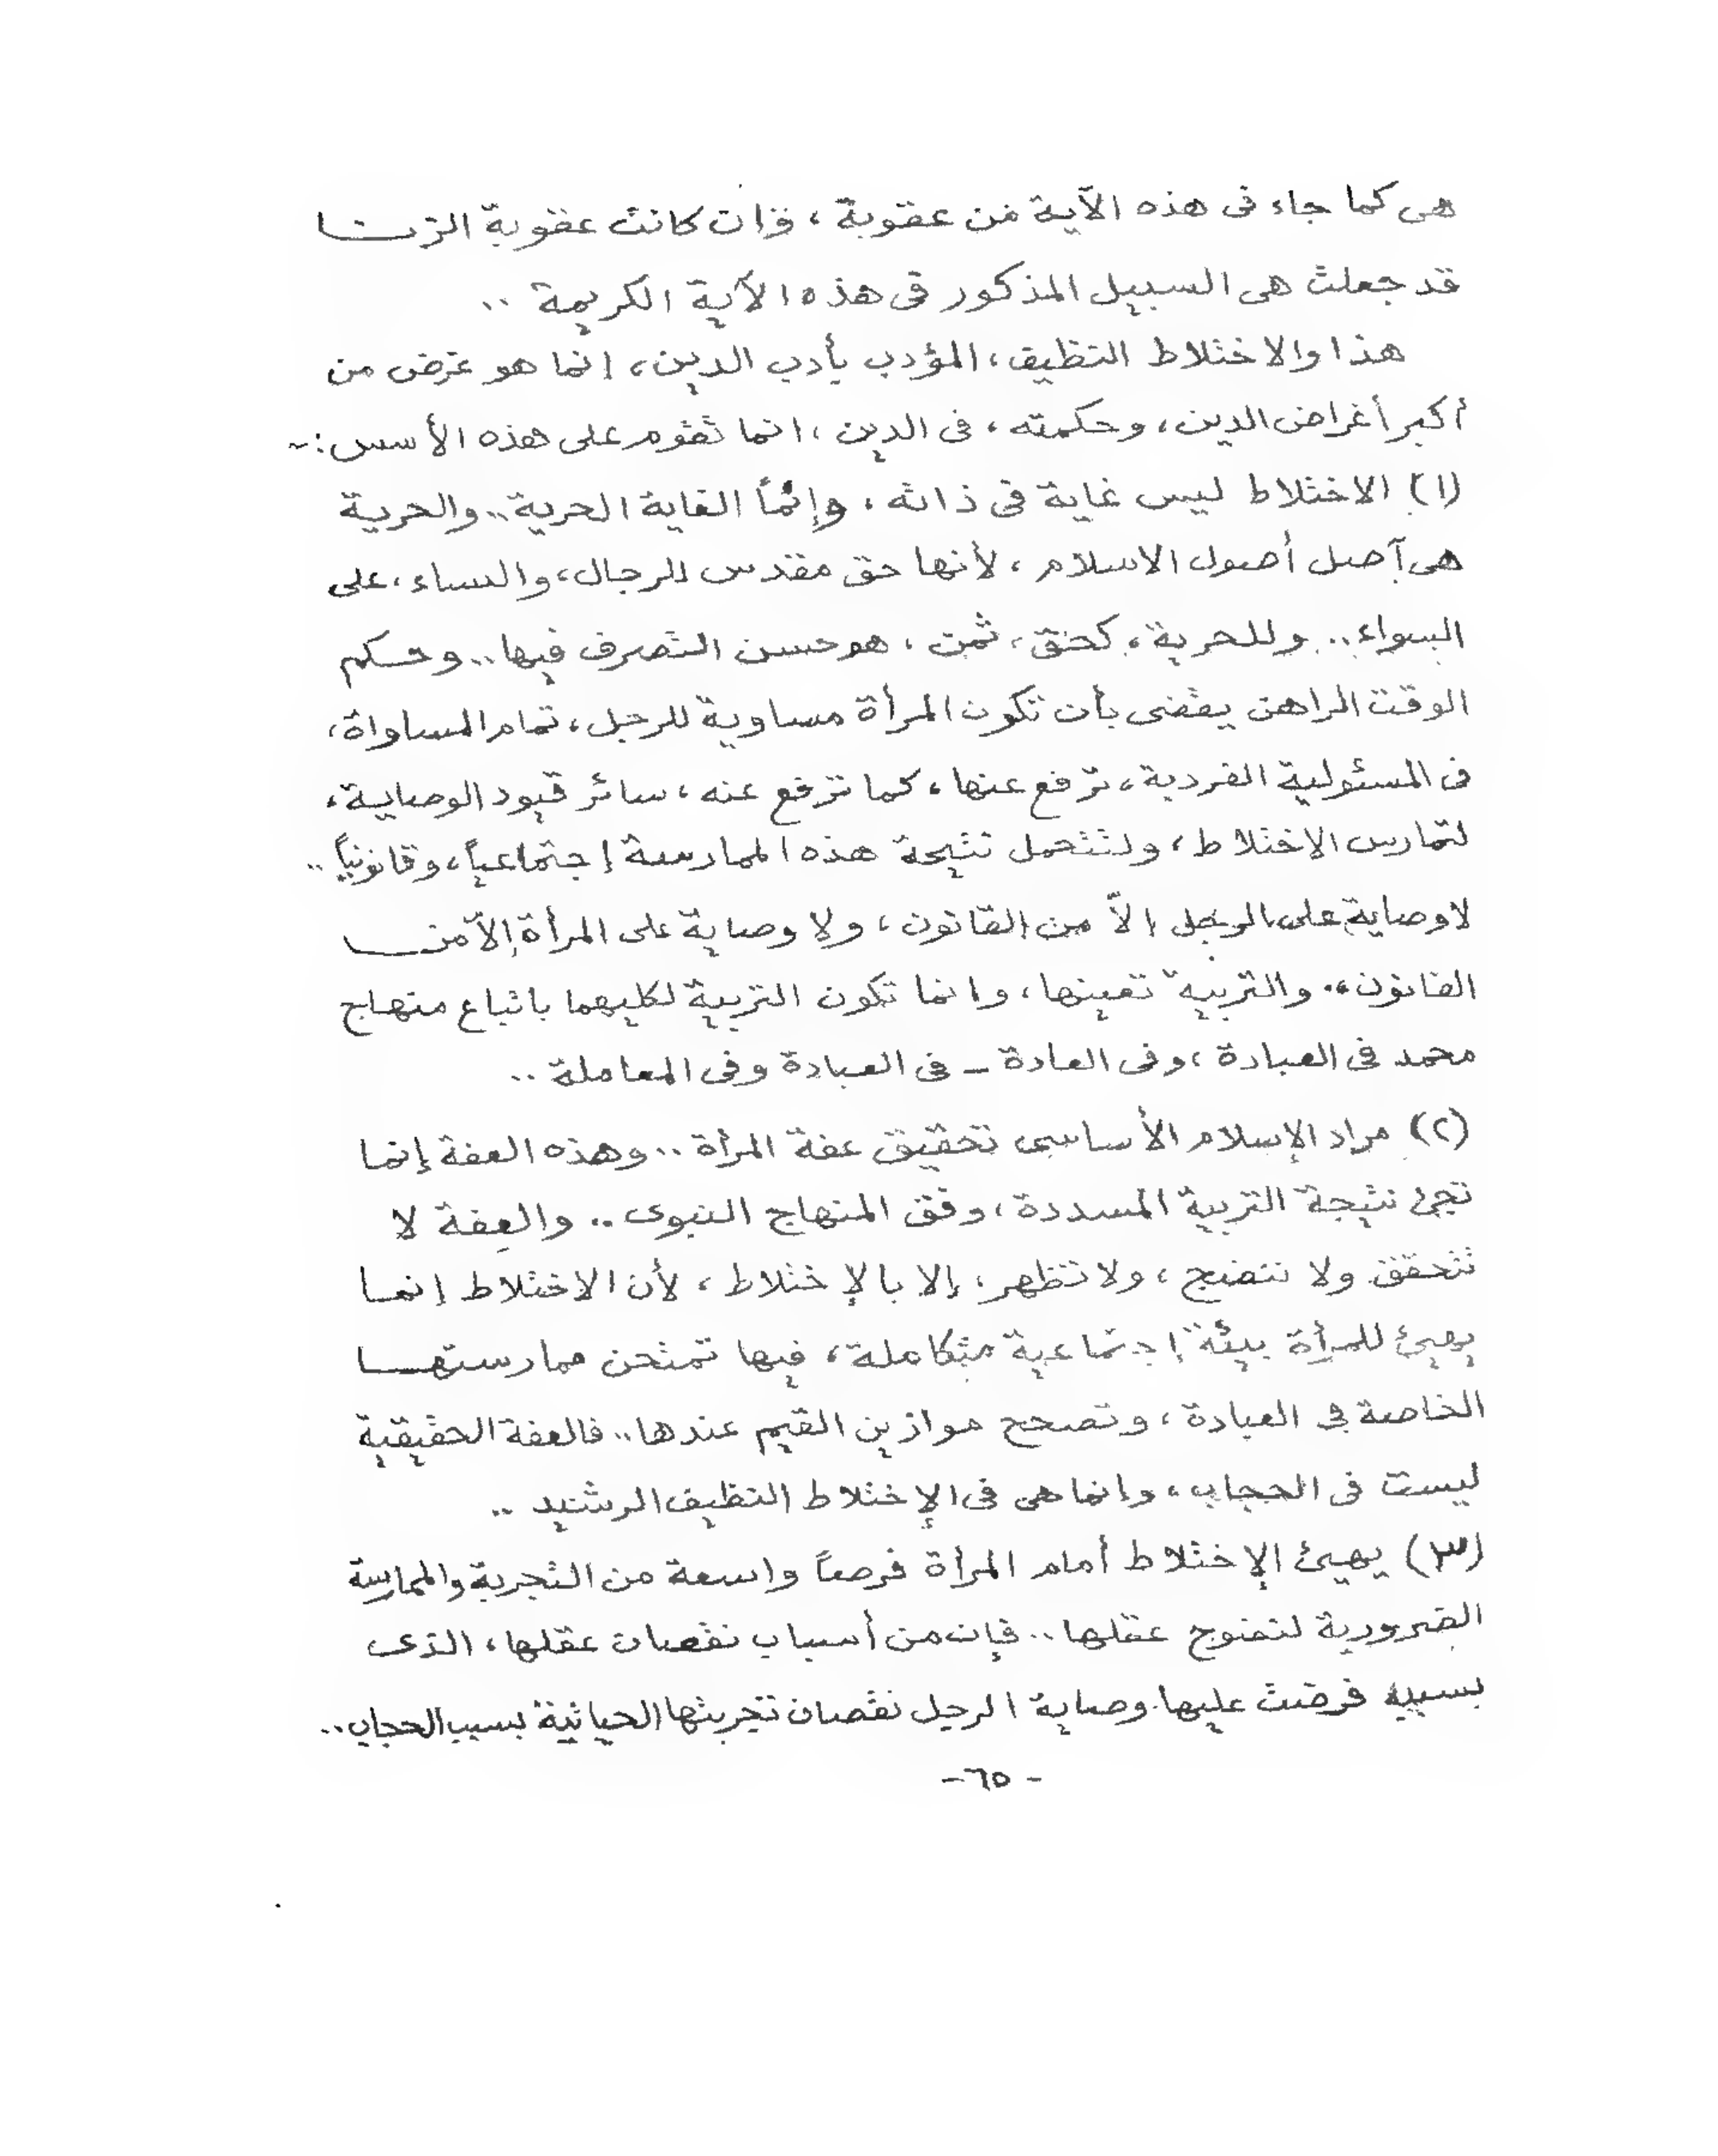 هى كما جاء فى هذه الآية من عقوبة ، وإن كانت عقوبة الزنا
قد جعلت هى السبيل المذكور فى هذه الآية الكريمة ..
هذا والاختلاط النظيف ، المؤدب بأدب الدين ، انما هو غرض من
أكبر أغراض الدين ، وحكمته ، فى الدين ، انما تقوم على هذه الأسس :-
(١) الاختلاط ليس غاية فى ذاته ، وإنماً الغاية الحرية .. والحرية
هى آصل أصول الاسلام ، لأنها حق مقدس للرجال ، والنساء ، على
السواء .. وللحرية ، كحق ، ثمن ، هو حسن التصرف فيها .. وحكم
الوقت الراهن يقضى بأن تكون المرأة مساوية للرجل ، تمام المساواة ،
فى المسئولية الفردية ، ترفع عنها ، كما ترفع عنه ، سائر قيود الوصاية ،
لتمارس الاختلاط ، ولتتحمل نتيجة هذه الممارسة إجتماعياً ، وقانونياً ..
لا وصاية على الرجل الاّ من القانون ، ولا وصاية على المرأة إلاّ من
القانون .. والتربية تعينها ، وانما تكون التربية لكليهما باتباع منهاج
محمد فى العبادة ، وفى العادة - فى العبادة وفى المعاملة ..
(٢) مراد الإسلام الأساسى تحقيق عفة المرأة .. وهذه العفة إنما
تجئ نتيجة التربية المسددة ، وفق المنهاج النبوى .. والعفة لا
تتحقق ولا تنضج ، ولا تظهر ، إلا بالإختلاط ، لأن الاختلاط إنما
يهيئ للمرأة بيئة إجتماعية متكاملة ، فيها تمتحن ممارستها
الخاصة فى العبادة ، وتصحح موازين القيم عندها .. فالعفة الحقيقية
ليست فى الحجاب ، وانما هى فى الإختلاط النظيف الرشيد ..
(٣) يهيئ الإختلاط أمام المرأة فرصاً واسعة من التجربة والممارسة
الضرورية لنضوج عقلها .. فإن من أسباب نقصان عقلها ، الذى
بسببه فرضت عليها وصاية الرجل نقصان تجربتها الحياتية بسبب الحجاب ..
- ٦٥ -